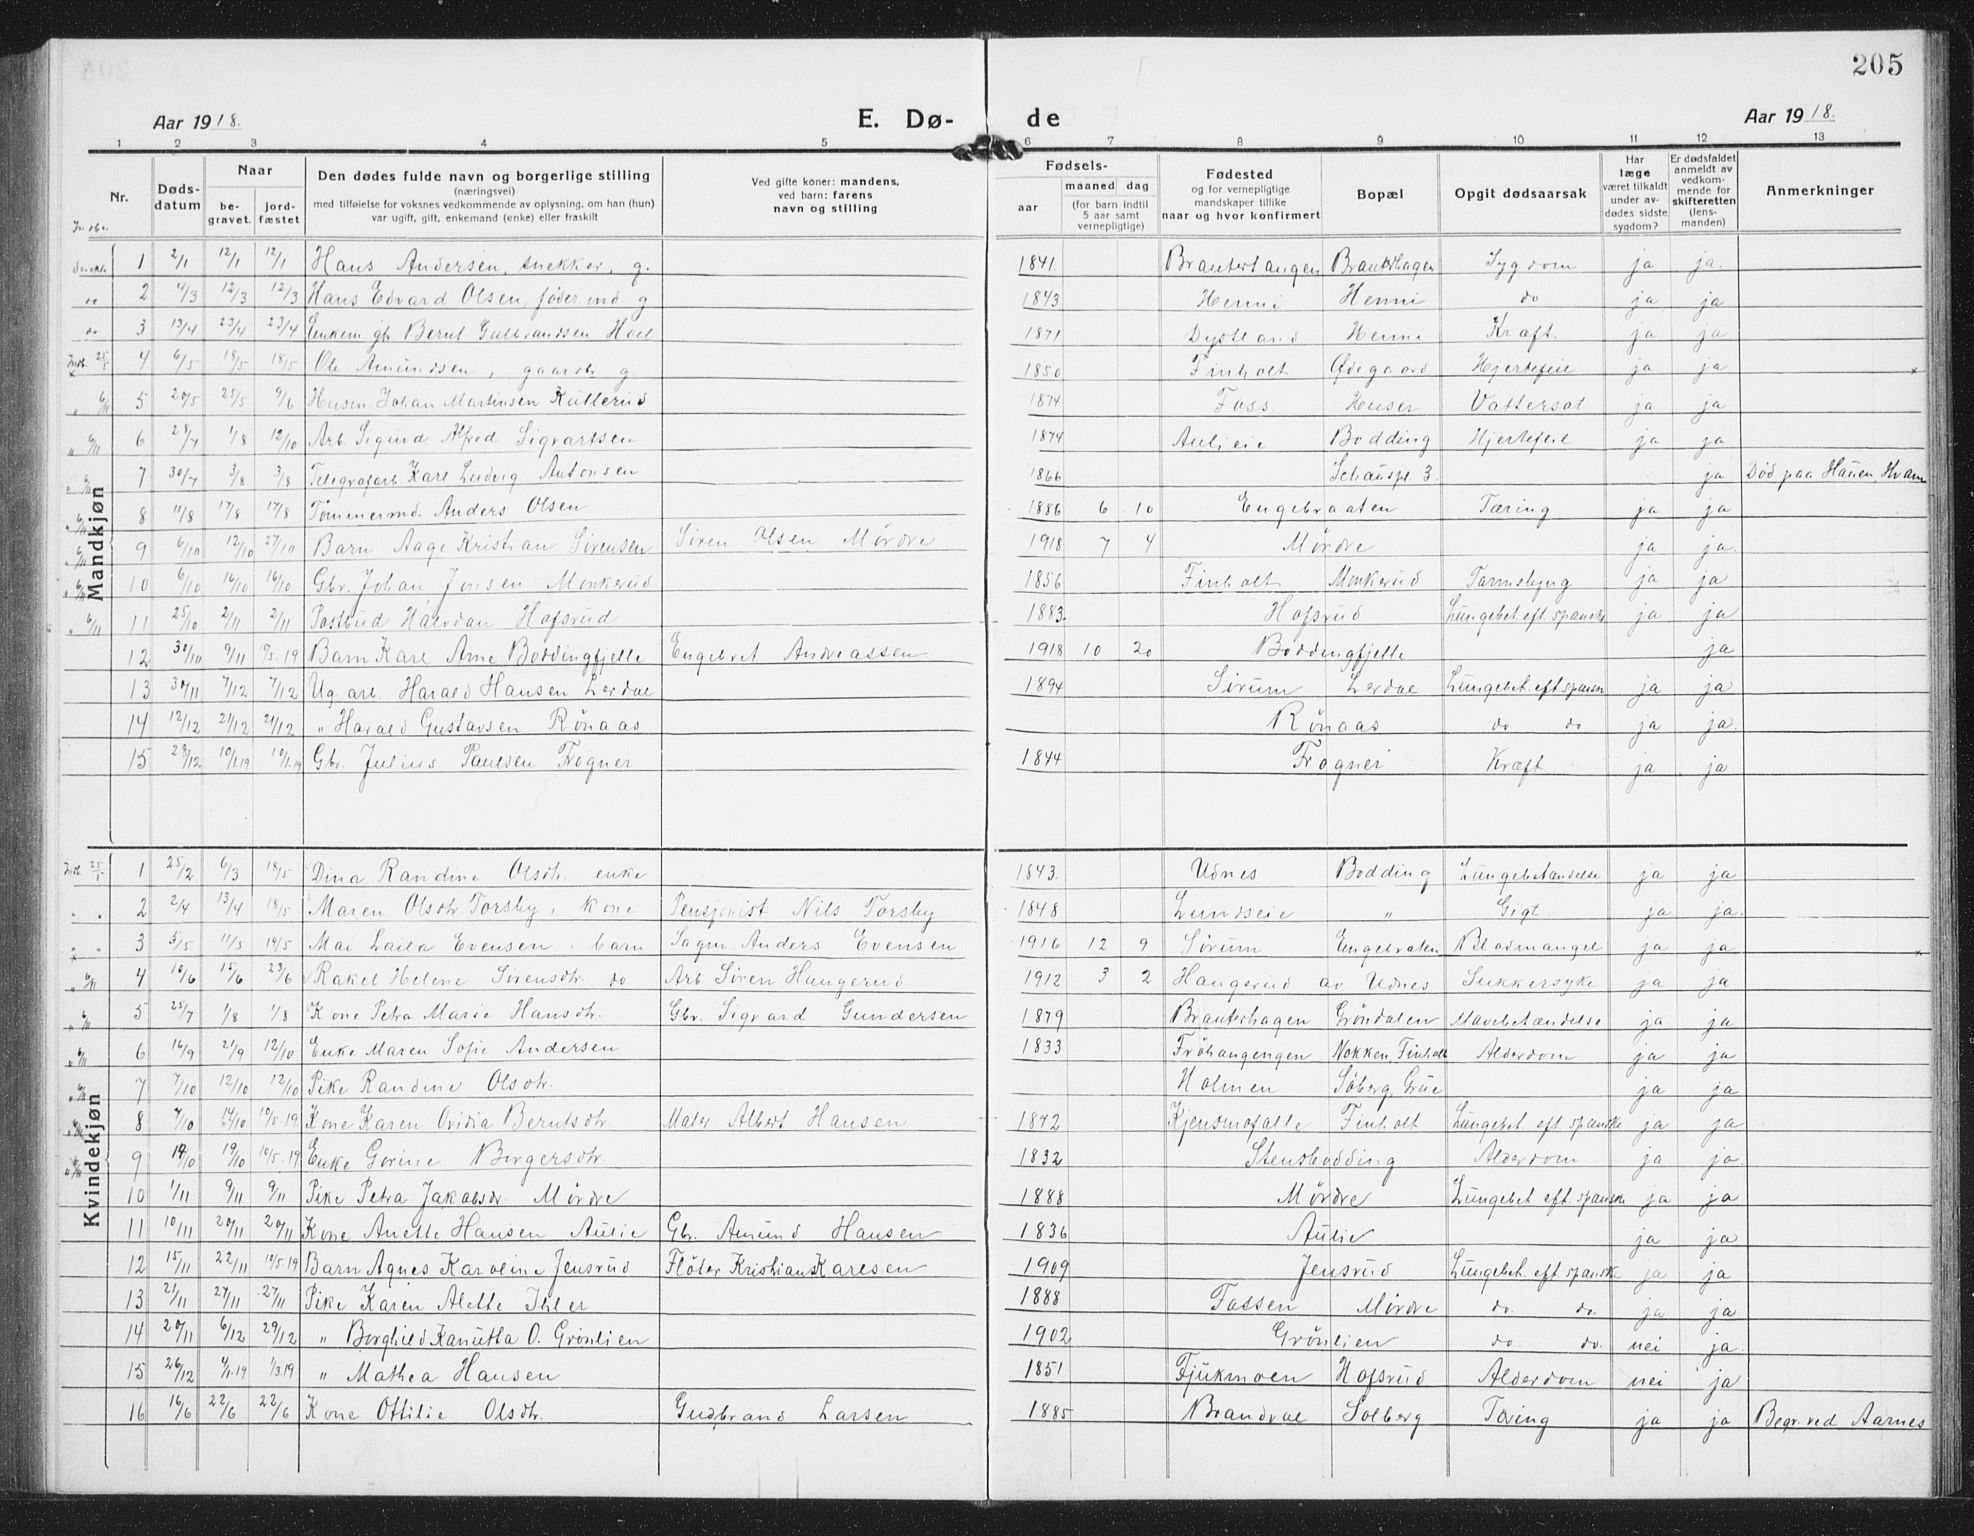 205
Aar 1918. E. Dø- de Aar 1918.
1 2 3 4 5 6 7 8 9 10 11 12 13
Nr. Døds-datum Naar be-gravet. jord-fæstet Den dødes fulde navn og borgerlige stilling (næringsvei) med tilføielse for voksnes vedkommende av oplysning, om han (hun) var ugift, gift, enkemand (enke) eller fraskilt Ved gifte koner: mandens, ved barn: farens navn og stilling Fødsels- aar maaned dag (for barn indtil 5 aar samt vernepligtige) Fødested og for vernepligtige mandskaper tillike naar og hvor konfirmert Bopæl Opgit dødsaarsak Har læge været tilkaldt under av-dødes sidste sygdom? Er dødsfaldet anmeldt av vedkom-mende for skifteretten (lens-manden) Anmerkninger
Mandkjøn
1 2/1 12/1 12/1 Hans Andersen, snekker, g. 1841. Brauterhangen Brauterhagen Sygdom ja ja.
2 4/3 12/3 12/3 Hans Edvard Olsen, fødermd g 1843 Henni Henni do ja ja
do 3 13/4 23/4 23/4 Enkem. gb. Bernt Gulbrandsen Hoel 1871 Dystland Henni Kræft ja ja
Indb. 25/5 4 6/5 18/5 18/5 Ole Amundsen, gaardbr g. 1850 Finholt Ødegaard Hjertefeil ja ja x
" 6/11 5 20/5 25/5 9/6 Husm. Johan Martinsen Kullerud 1874 Foss. Huser Vattersot ja ja
" 6/11 6 28/7 1/8 12/10 Arb. Sigurd Alfred Sigvartsen 1874 Aulieie Bodding Hjertefeil ja ja
" 6/11 7 30/7 3/8 3/8 Telegrafarb. Karl Ludvig Antonsen 1866 Schauspl. 3. ja Død paa Hauen Hvam
" 6/11 8 11/8 17/8 17/8 Tømmermd. Anders Olsen 1886 6 10 Engebraaten Tæring ja ja
" 6/11 9 6/10 12/10 27/10 Barn Aage Kristian Sørensen Søren Olsen Mørdre 1918 7 4 Mørdre ja ja.
" 6/11 10 6/10 16/10 16/10 Gbr. Johan Jonsen Monkerud 1856 Finholt Monkerud Tarmslyng ja ja
" 6/11 11 25/10 2/11 2/11 Postbud Halvdan Hofsrud 1883. Hofsrud Lungebet. eft. spanske ja ja
12 30/10 9/11 10/5-19 Barn Karl Arne Boddingfjelle Engebret Andreassen 1918 10 20 Boddingfjelle ja
13 30/11 7/12 7/12 Ug. arb. Harald Hansen Lerdal 1894 Sørum Lerdal Lungebet. eft spansk ja ja
14 12/12 21/12 21/12 " Harald Gustavsen Rønaas Rønaas do do ja ja.
15 29/12 10/1.19 10/1.19 Gbr. Julius Paulsen Frogner 1844 Frogner Kræft ja ja
Kvindekjøn
Indb. 25/5 1 25/2 6/3 18/5 Dina Randine Olsdtr. enke 1843. Udnes Bodding Lungebetændelse ja ja
" " 2 2/4 13/4 18/5 Maren Olsdtr Torsby, kone Pensjonist Nils Torsby 1848 Lundseie " Gigt. ja ja.
" " 3 5/5 11/5 19/5 Mai Laila Evensen, barn Sagm Anders Evensen 1916 12 9 Sørum Engebraten Blodmangel ja ja x
" 6/11 4 10/6 15/6 23/6 Rakel Helene Sørensdtr. do Arb Søren Haugerud 1912 3 2 Haugerud av Udnes Sukkersyke ja ja
" 6/11 5 25/7 1/8 1/8 Kone Petra Marie Hansdtr. Gbr. Sigvard Gundersen 1879 Brauterhagen Grøndalen Mavebetændelse ja ja
" 6/11 6 16/9 21/9 12/10 Enke Maren Sofie Andersen 1833 Frøhaugengen Nokken, Finholt Alderdom ja ja
" 6/11 7 7/10 12/10 12/10 Pike Randine Olsdtr. Holmen Søberg, Grue ja ja
8 7/10 14/10 10/5-19 Kone Karen Ovidia Berntsdtr Maler Albert Hansen 1872 Kjensmofalle Finholt Lungebet eft spanske ja ja
" 6/11 9 14/10 19/10 10/5-19 Enke Gorine Borgersdtr. 1832 Stensbodding Alderdom ja ja.
10 1/11 9/11 9/11 Pike Petra Jakobsdr. Mørdre 1888 Mørdre Lungebet eft. spanske ja ja
11 10/11 20/11 20/11 Kone Anette Hansen Aulie Gbr. Amund Hansen 1836 Aulie ja ja
12 15/11 22/11 10/5-19 Barn Agnes Karoline Jensrud Fløter Kristian Karlsen 1909 Jensrud Lungebet. eft spanske ja ja
13 21/11 27/11 27/11 Pike Karen Alette Ihler 1888 Fossen Mørdre do. do. ja ja
14 20/11 6/12 29/12 " Borghild Kanutta O. Grønlien 1902 Grønlien do do. nei ja.
15 26/12 4/1.19 1/3.19 " Mathea Hansen 1851 Fjukmoen Hofsrud Alderdom nei ja
16 16/6 22/6 22/6 Kone Ottilie Olsdtr. Gudbrand Larsen 1885 Brandval Solberg Tæring ja ja Begr. ved Aarnes